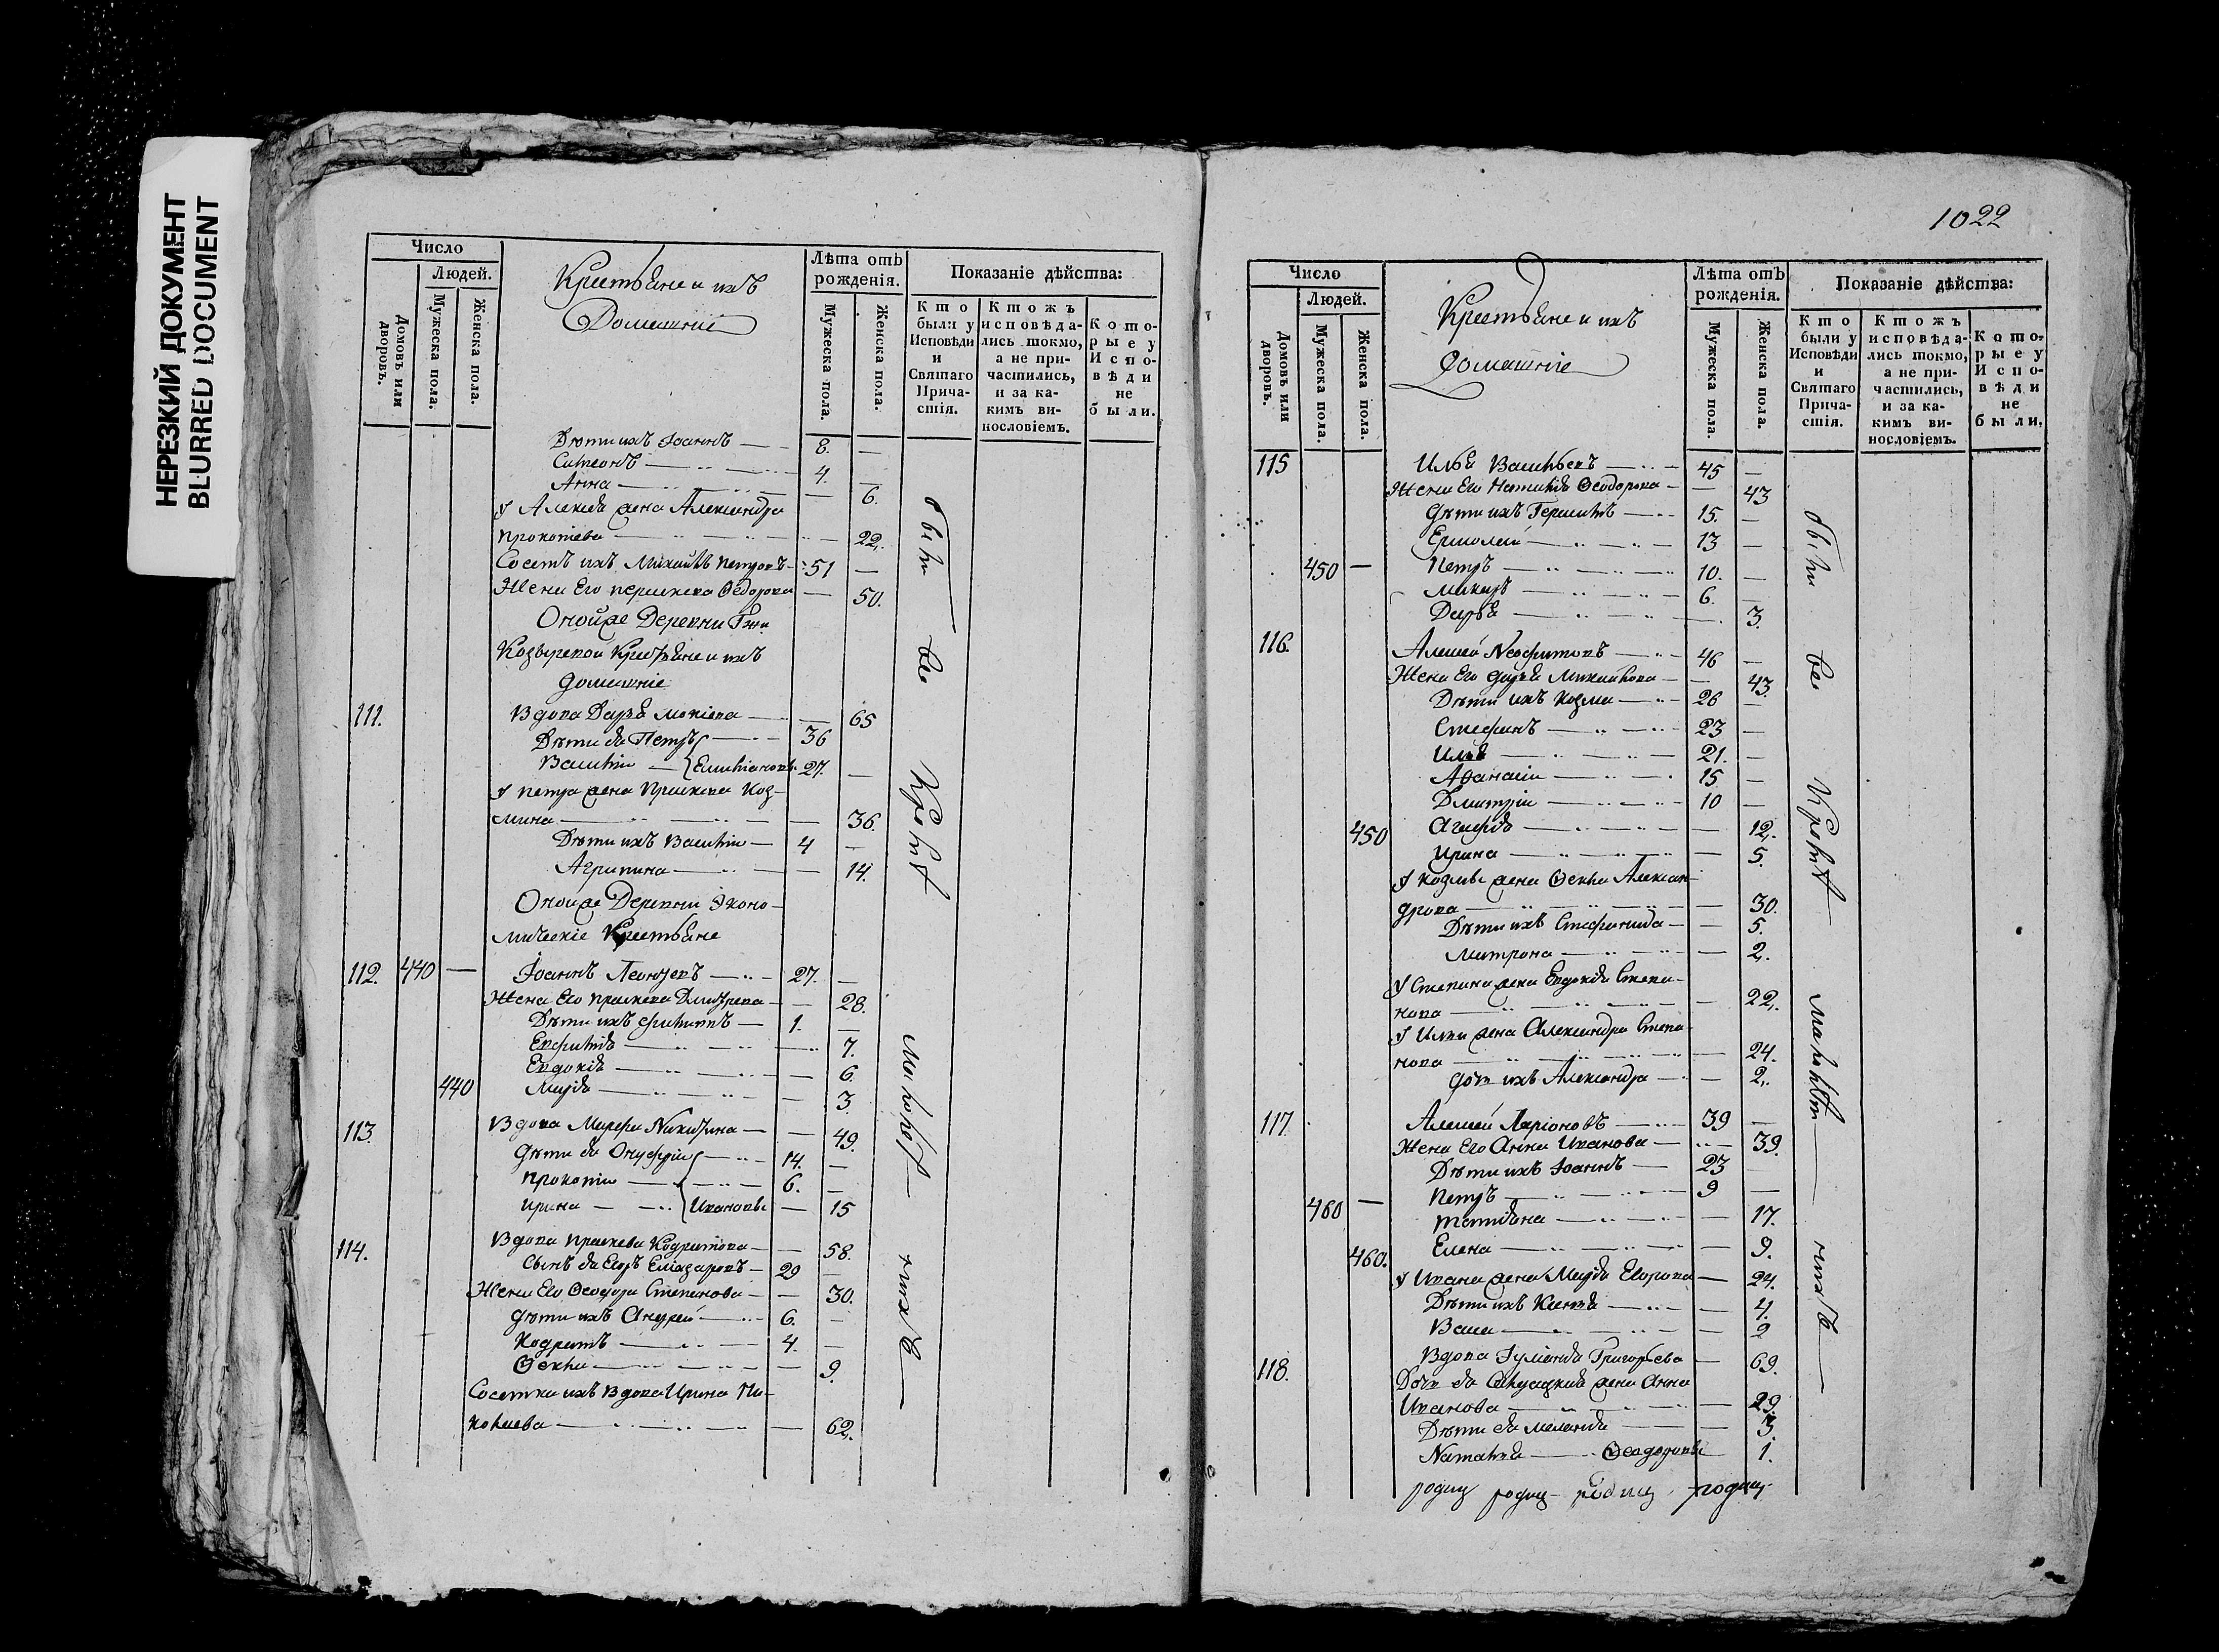 НЕРЕЗКИЙ ДОКУМЕНТ
BLURRED DOCUMENT
Число
Людей.
Домовъ или дворовъ.
Мужеска пола.
Женска пола.
Крестьяне и ихъ
Домашніе
Лѣта отъ рожденія.
Мужеска пола.
Женска пола.
Показаніе дѣйства:
Кто были у Исповѣди и Святаго Причастія.
Ктожъ исповѣдались токмо, а не причастились, и за какимъ винословіемъ.
Которые у Исповѣди не были.
Дѣти ихъ Іоаннъ 8. —
Симеонъ 4. —
Анна — 6.
У Алексѣя жена Александра
Прокопіева — 22.
Михаилъ Петровъ 51 —
Жена Его Параскева Ѳедорова — 50.
Оной же Деревни
Крестьяне и ихъ
домашніе
111. Вдова Дарья — 65
Дѣти ея Петръ 36
Василій Емиліановы 27. —
У Петра жена Праскева Коз-
мина — 36.
Дѣти ихъ Василій 4 —
Агрипина — 14.
Оной же Деревни Эконо-
мическіе Крестьяне
112. 440 — Іоаннъ Леонтьевъ 27. —
Жена Его Праскева Дмитрева — 28.
Дѣти ихъ Филиппъ 1. —
— 7.
Евдокія — 6.
440 Марія — 3
113. Вдова Марфа Никитина — 49.
Дѣти ея Онуфрій 14. —
Прокопій 6. —
Ирина Ивановы — 15
114. Вдова Праскева — 58.
Сынъ ея Егоръ Елиазаровъ 29 —
Жена Его Ѳеодора Степанова — 30.
Дѣти ихъ Андрей 6. —
Кодратъ 4. —
Ѳекла — 9.
вдова Ирина
— 62.
были
все
1022
Число
Людей.
Домовъ или дворовъ.
Мужеска пола.
Женска пола.
Крестьяне и ихъ
Домашніе
Лѣта отъ рожденія.
Мужеска пола.
Женска пола.
Показаніе дѣйства:
Кто были у Исповѣди и Святаго Причастія.
Ктожъ исповѣдались токмо, а не причастились, и за какимъ винословіемъ.
Которые у Исповѣди не были.
115 Илья Васильевъ 45 —
Жена Его Наталія Ѳеодорова — 43
Дѣти ихъ Герасимъ 15. —
Ермолай 13 —
450 — Петръ 10. —
Макаръ 6. —
Дарья — 3.
116. Алексей Неофитовъ 46 —
Жена Его Дарья Михайлова — 43
Дѣти ихъ Козма 26 —
Стефанъ 23 —
Илья 21. —
Афанасій 15 —
Дмитрій 10 —
450 Агафія — 12.
Ирина — 5.
У Козмы жена Ѳекла Алексан-
дрова — 30.
Дѣти ихъ Стефанида — 5.
Матрона — 2.
У Степана жена Евдокія Степа-
нова — 22.
У Ильи жена Александра Степа-
нова — 24.
дочь ихъ Александра — 2.
117. Алексей Ларіоновъ 39 —
Жена Его Анна Иванова — 39.
Дѣти ихъ Іоаннъ 23 —
460 — Петръ 9 —
Татіана — 17.
460. Елена — 9.
У Ивана жена Марія Егорова — 24.
Дѣти ихъ Ксенія — 4.
Васса — 2
118. Вдова Іуліанія Григорьева — 69.
Дочь ея Солдацкая жена Анна
Иванова — 29.
Дѣти ея Меланія — 3
Наталья Ѳеодоровы — 1.
были
все